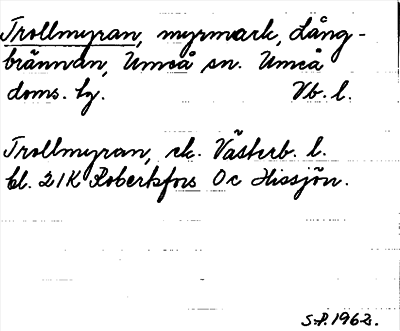 Trollmyran, myrmark, Lång-
brännan, Umeå sn. Umeå
doms. hg. Vb. l.
Trollmyran, ek. Västerb. l.
bl. 21K Robertsfors Oc Hissjön.
S.P. 1962.